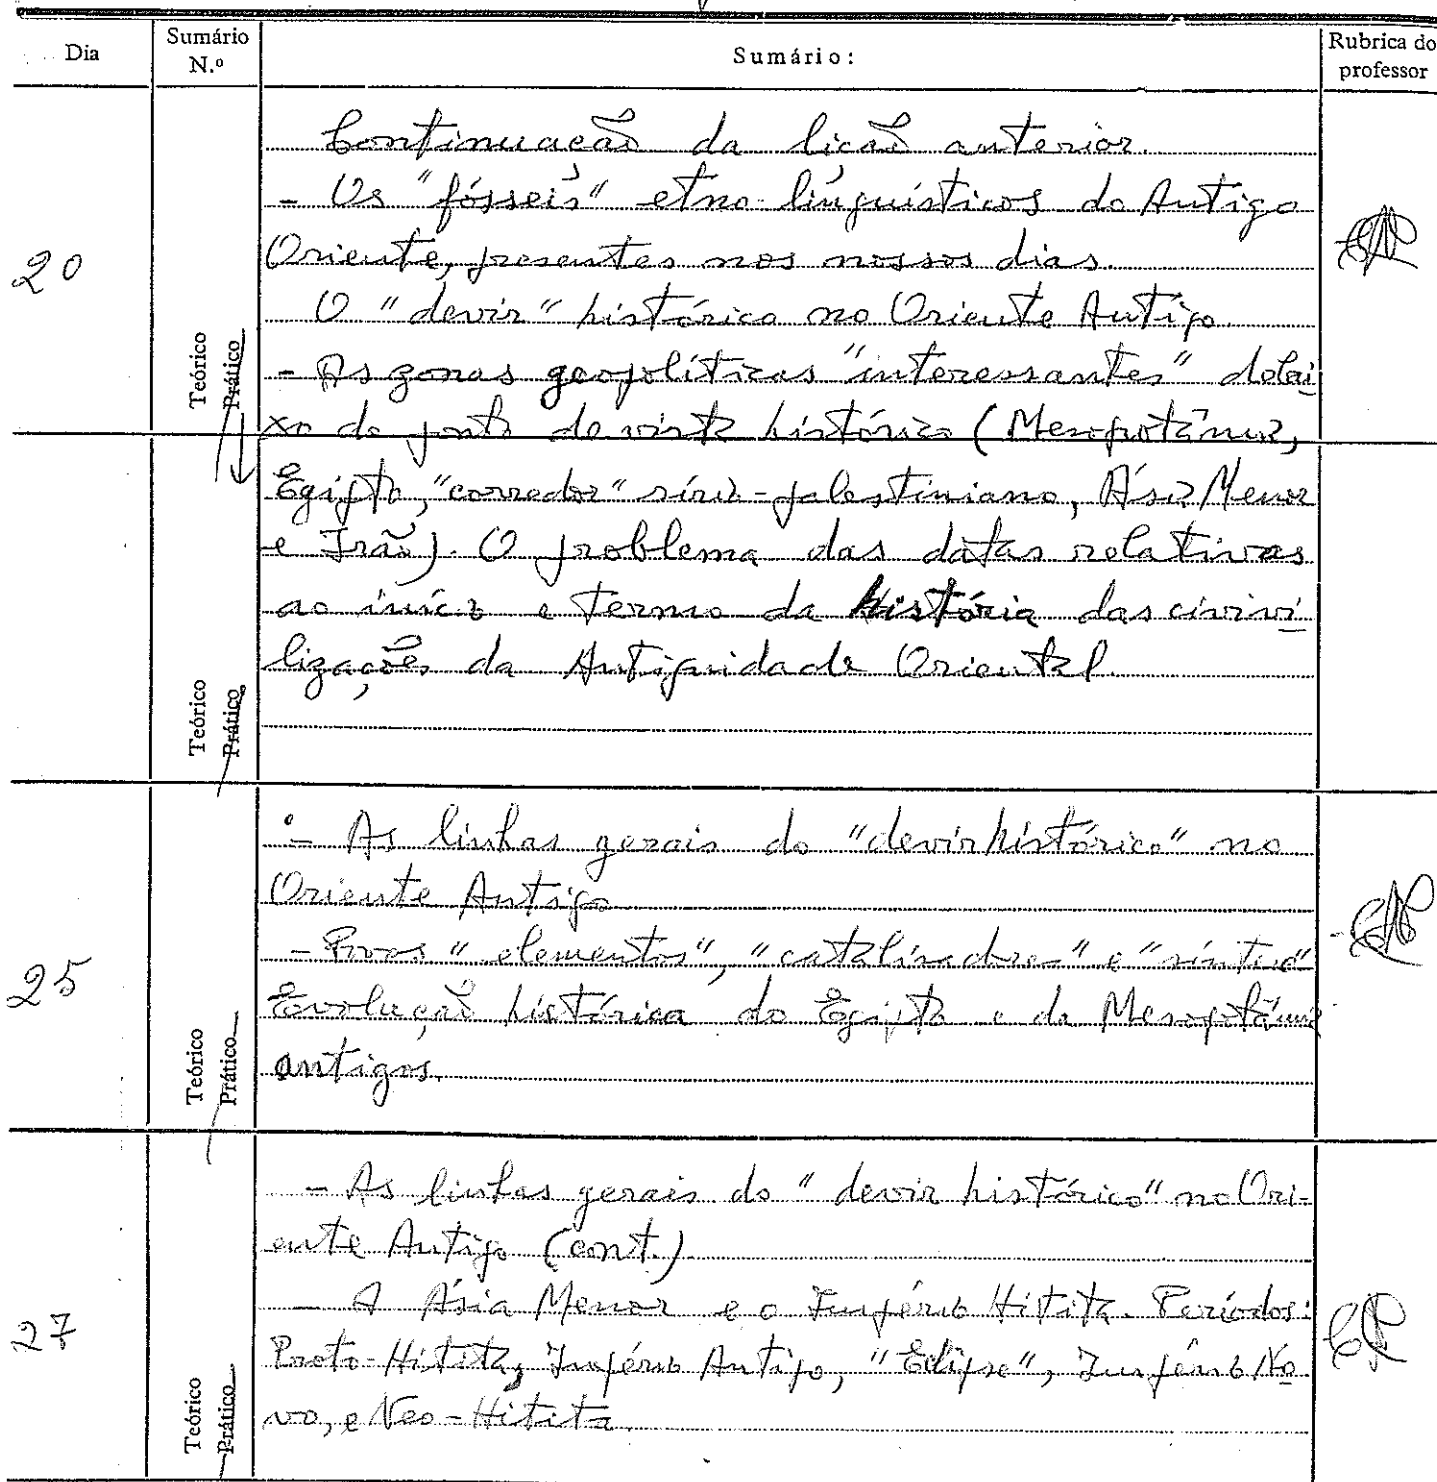 Dia
Sumário N.º
Sumário:
Rubrica do professor
20
Teórico
Prático
Continuação da lição anterior.
- Os "fósseis" etno-linguísticos do Antigo
Oriente, presentes nos nossos dias.
O "devir" histórico no Oriente Antigo.
- As zonas geopolíticas "interessantes" debai
xo do ponto de vista histórico (Mesopotâmia,
Egipto, "corredor" sírio-palestiniano, Ásia Menor
e Irão). O problema das datas relativas
ao início e termo da história das civivi
lizações da Antiguidade Oriental.
Teórico
Prático
25
Teórico
Prático
- As linhas gerais do "devir histórico" no
Oriente Antigo
- Povos "elementos", "catalisadores" e "síntese"
Evolução histórica do Egipto e da Mesopotâmia
antigos.
27
Teórico
Prático
- As linhas gerais do "devir histórico" no Ori-
ente Antigo (cont.)
- A Ásia Menor e o Império Hitita. Períodos:
Proto-Hitita, Império Antigo, "Eclipse", Império No
vo, e Neo-Hitita.